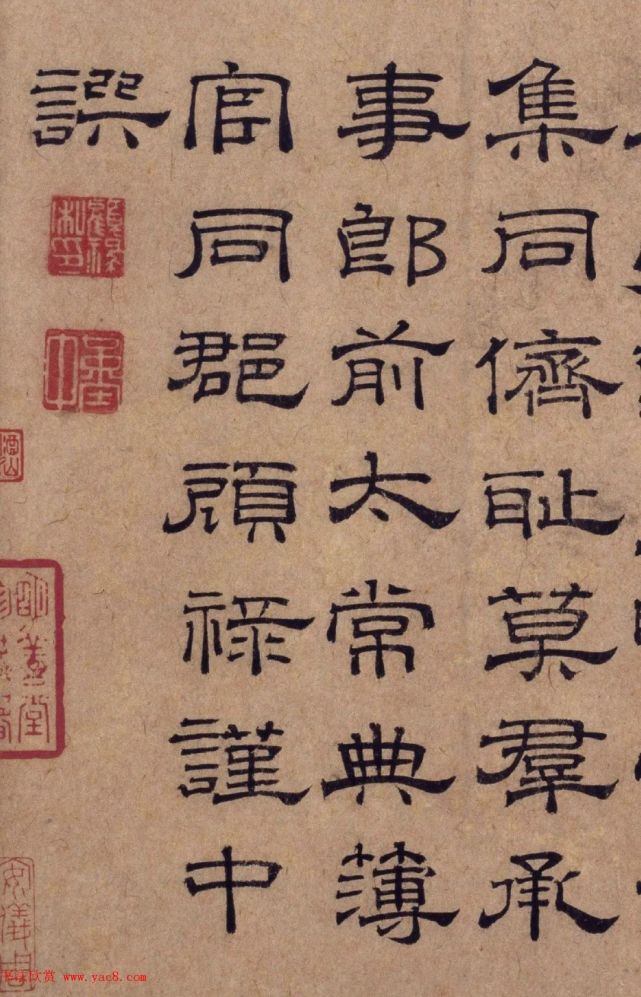 集同儕耻莫羣承
事郎前太常典簿
官同郡顧禄謹中
譔
明善堂
安儀周
欣赏 www.yac8.com